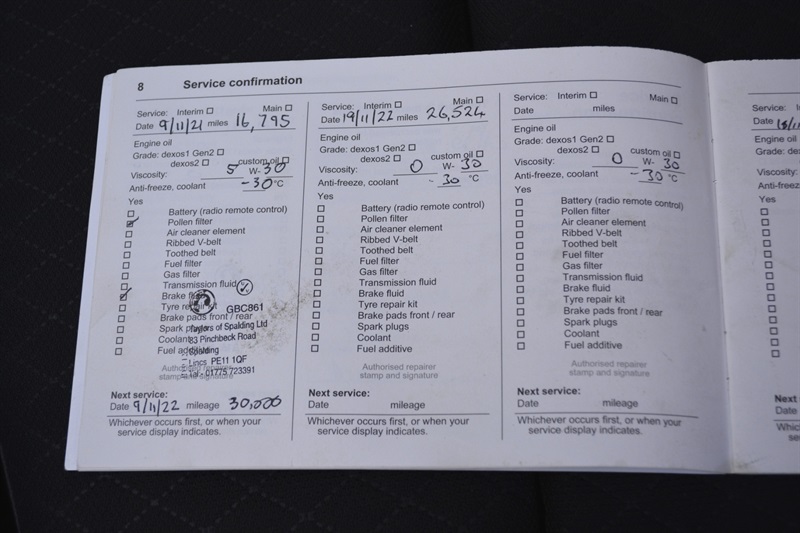 8 Service confirmation
Service: Interim ☐ Main ☐
Date 9/11/21 miles 16,795
Engine oil
Grade: dexos1 Gen2 ☐
dexos2 ☐ custom oil ☐
Viscosity: 5 W- 30
Anti-freeze, coolant -30 °C
Yes
☐ Battery (radio remote control)
☑ Pollen filter
☐ Air cleaner element
☐ Ribbed V-belt
☐ Toothed belt
☐ Fuel filter
☐ Gas filter
☐ Transmission fluid
☑ Brake fluid
☐ Tyre repair kit
☐ Brake pads front / rear
☐ Spark plugs
☐ Coolant
☐ Fuel additive
GBC861
Taylors of Spalding Ltd
83 Pinchbeck Road
Spalding
Lincs PE11 1QF
Tel: 01775 723391
Authorised repairer
stamp and signature
Next service:
Date 9/11/22 mileage 30,000
Whichever occurs first, or when your
service display indicates.
Service: Interim ☐ Main ☐
Date 19/11/22 miles 26,524
Engine oil
Grade: dexos1 Gen2 ☐
dexos2 ☐ custom oil ☐
Viscosity: 0 W- 30
Anti-freeze, coolant -30 °C
Yes
☐ Battery (radio remote control)
☐ Pollen filter
☐ Air cleaner element
☐ Ribbed V-belt
☐ Toothed belt
☐ Fuel filter
☐ Gas filter
☐ Transmission fluid
☐ Brake fluid
☐ Tyre repair kit
☐ Brake pads front / rear
☐ Spark plugs
☐ Coolant
☐ Fuel additive
Authorised repairer
stamp and signature
Next service:
Date mileage
Whichever occurs first, or when your
service display indicates.
Service: Interim ☐ Main ☐
Date miles
Engine oil
Grade: dexos1 Gen2 ☐
dexos2 ☐ custom oil ☐
Viscosity: 0 W- 30
Anti-freeze, coolant -30 °C
Yes
☐ Battery (radio remote control)
☐ Pollen filter
☐ Air cleaner element
☐ Ribbed V-belt
☐ Toothed belt
☐ Fuel filter
☐ Gas filter
☐ Transmission fluid
☐ Brake fluid
☐ Tyre repair kit
☐ Brake pads front / rear
☐ Spark plugs
☐ Coolant
☐ Fuel additive
Authorised repairer
stamp and signature
Next service:
Date mileage
Whichever occurs first, or when your
service display indicates.
Service:
Date
Engine oil
Grade:
Viscosity:
Yes
Next
Date